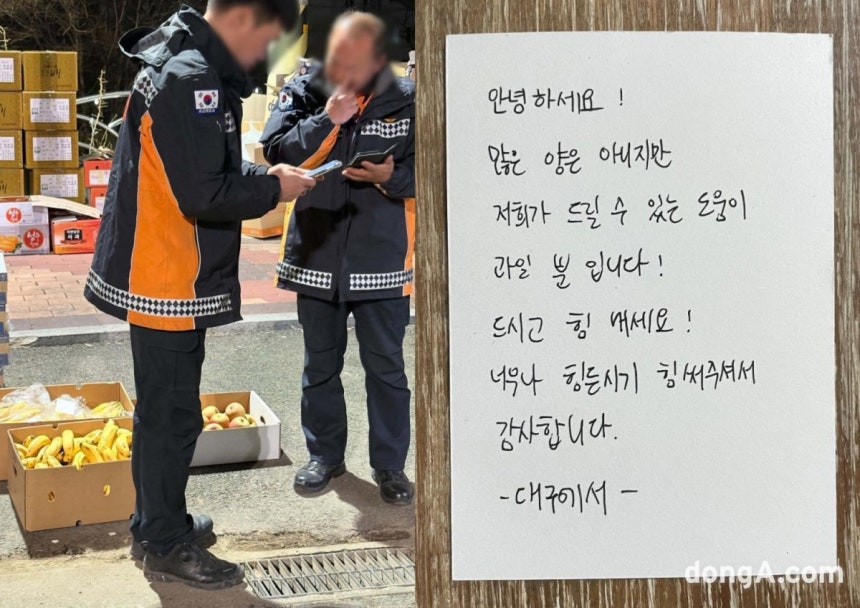 안녕하세요 !
많은 양은 아니지만
저희가 드릴 수 있는 도움이
과일 뿐 입니다 !
드시고 힘 내세요 !
너무나 힘든시기 힘써주셔서
감사합니다.
- 대구에서 -
dongA.com